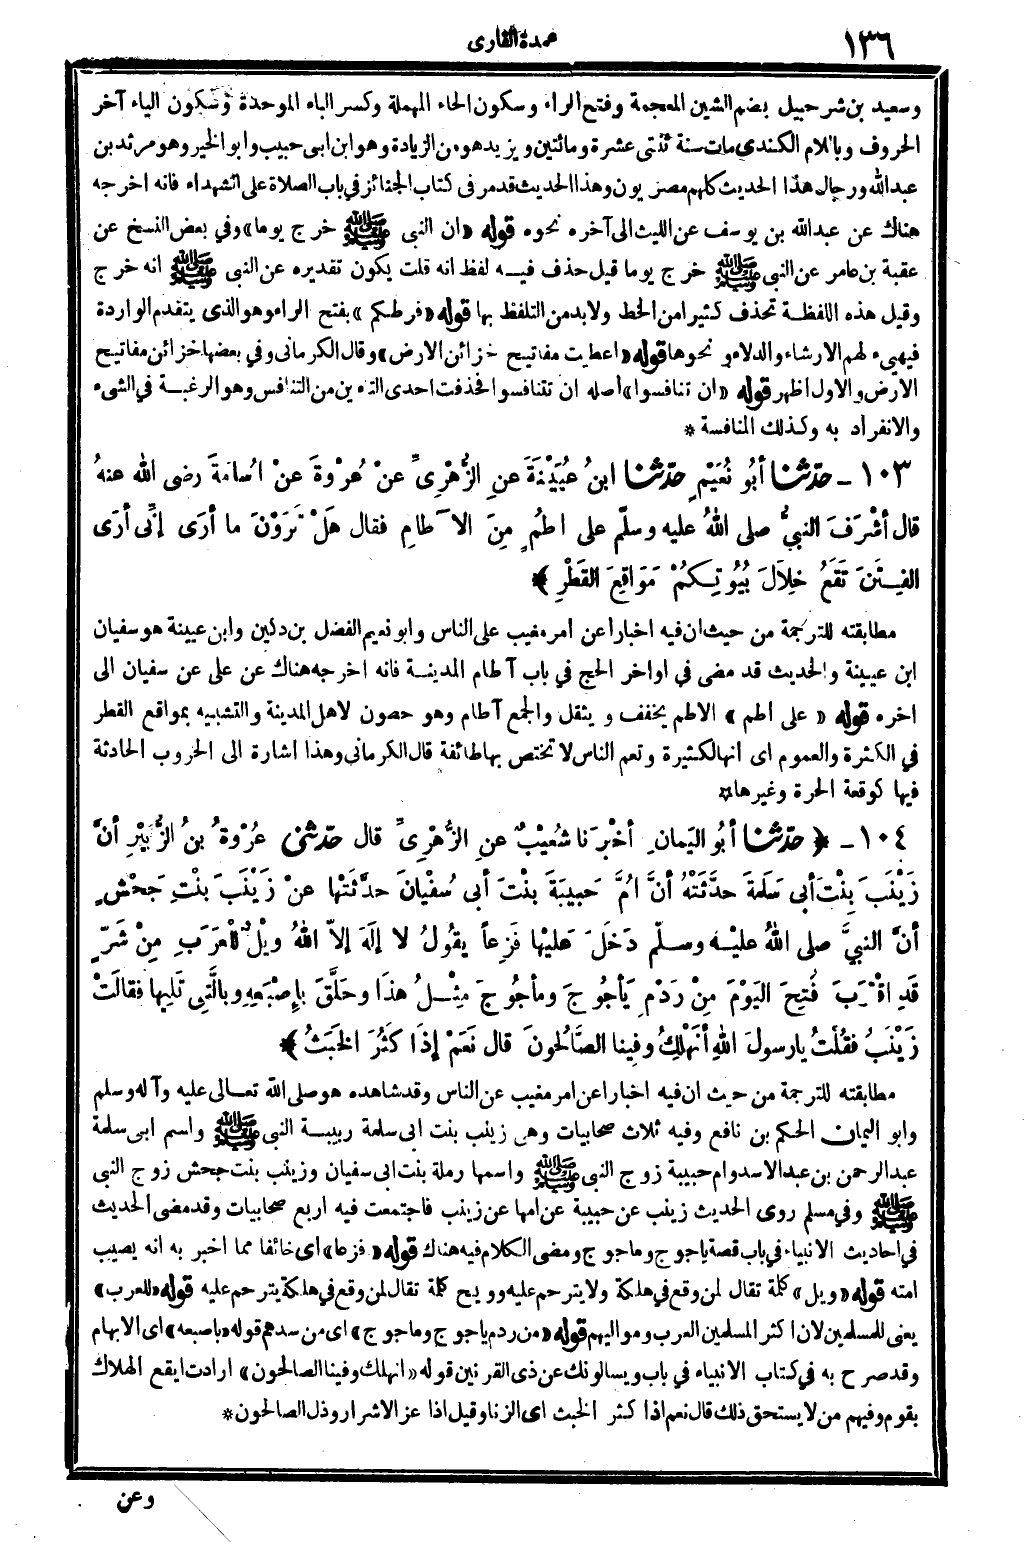 ١٣٦
عمدة القارى
وسعيد بن شرحبيل بضم الشين المعجمة وفتح الراء وسكون الحاء المهملة وكسر الباء الموحدة وسكون الياء آخر
الحروف وباللام الكندى مات سنة ثنتى عشرة ومائتين ويزيد هو من الزيادة وهو ابن ابى حبيب وابو الخير وهو مرثد بن
عبدالله ورجال هذا الحديث كلهم مصريون وهذا الحديث قد مر فى كتاب الجنائز في باب الصلاة على الشهداء فانه اخرجه
هناك عن عبدالله بن يوسف عن الليث الى آخره نحوه قوله «ان النبى ﷺ خرج يوما» وفي بعض النسخ عن
عقبة بن عامر عن النبى ﷺ خرج يوما قيل حذف فيه لفظ انه قلت يكون تقديره عن النبى ﷺ انه خرج
وقيل هذه اللفظة تحذف كثيرا من الخط ولابد من التلفظ بها قوله «فرطكم» بفتح الراء وهو الذى يتقدم الواردة
فيهيء لهم الارشاء والدلاء ونحوها قوله «اعطيت مفاتيح خزائن الارض» وقال الكرمانى وفي بعضها خزائن مفاتيح
الارض والاول اظهر قوله «ان تنافسوا» اصله ان تتنافسوا فحذفت احدى التاءين من التنافس وهو الرغبة في الشىء
والانفراد به وكذلك المنافسة *
١٠٣ - حدّثنا أبُو نُعَيْمٍ حدّثنا ابنُ عُيَيْنَةَ عنِ الزُّهْرِيِّ عنْ عُرْوةَ عنْ اُسامَةَ رضى الله عنهُ
قال أشْرَفَ النبيُّ صلى اللهُ عليه وسلّم على اطُمٍ مِنَ الآطامِ فقال هَلْ تَرَوْنَ ما أرَى إنِّى أرَى
الفِتَنَ تَقَعُ خِلالَ بُيُوتِكُمْ مَوَاقِعَ القَطْرِ ﴾
مطابقته للترجمة من حيث ان فيه اخبارا عن امر مغيب على الناس وابو نعيم الفضل بن دكين وابن عيينة هو سفيان
ابن عيينة والحديث قد مضى في اواخر الحج في باب آطام المدينة فانه اخرجه هناك عن على عن سفيان الى
اخره قوله «على اطم» الاطم يخفف ويثقل والجمع آطام وهو حصون لاهل المدينة والتشبيه بمواقع القطر
في الكثرة والعموم اى انها لكثيرة وتعم الناس لا تختص بها طائفة قال الكرمانى وهذا اشارة الى الحروب الحادثة
فيها كوقعة الحرة وغيرها *
١٠٤ - ﴿ حدّثنا أبُو اليَمانِ أخْبرَنا شُعَيْبٌ عنِ الزُّهْرِيِّ قال حدّثنى عُرْوةُ بنُ الزُّبَيْرِ أنَّ
زَيْنَبَ بِنْتَ أبى سَلَمَةَ حدَّثَتْهُ أنَّ اُمَّ حَبِيبَةَ بِنْتَ أبى سُفْيانَ حدَّثَتْها عنْ زَيْنَبَ بِنْتِ جَحْشٍ
أنَّ النبيَّ صلى اللهُ عليْه وسلّم دَخَلَ عَليْها فَزِعاً يقُولُ لا إلَهَ إلاّ اللهُ ويْلٌ لِلْعَرَبِ مِنْ شَرٍّ
قَدِ اقْتَرَبَ فُتِحَ اليَوْمَ مِنْ رَدْمِ يَأجُوجَ ومأجُوجَ مِثْلُ هذَا وحَلَّقَ بإِصْبَعِهِ وبالَّتِى تَلِيها فقالَتْ
زَيْنَبُ فقُلْتُ يا رسولَ اللهِ أنَهْلِكُ وفِينا الصَّالِحُونَ قال نَعَمْ إذَا كَثُرَ الخَبَثُ ﴾
مطابقته للترجمة من حيث ان فيه اخبارا عن امر مغيب عن الناس وقد شاهده هو صلى الله تعالى عليه وآله وسلم
وابو اليمان الحكم بن نافع وفيه ثلاث صحابيات وهى زينب بنت ابى سلمة ربيبة النبى ﷺ واسم ابى سلمة
عبدالرحمن بن عبدالاسد وام حبيبة زوج النبى ﷺ واسمها رملة بنت ابى سفيان وزينب بنت جحش زوج النبى
ﷺ وفي مسلم روى الحديث زينب عن حبيبة عن امها عن زينب فاجتمعت فيه اربع صحابيات وقد مضى الحديث
في احاديث الانبياء في باب قصة ياجوج وماجوج ومضى الكلام فيه هناك قوله «فزعا» اى خائفا مما اخبر به انه يصيب
امته قوله «ويل» كلمة تقال لمن وقع في هلكة ولا يترحم عليه وويح كلمة تقال لمن وقع في هلكة يترحم عليه قوله «للعرب»
يعنى للمسلمين لان اكثر المسلمين العرب ومواليهم قوله «من ردم ياجوج وماجوج» اى من سدهم قوله «باصبعه» اى الابهام
وقد صرح به في كتاب الانبياء في باب ويسالونك عن ذى القرنين قوله «انهلك وفينا الصالحون» ارادت ايقع الهلاك
بقوم وفيهم من لا يستحق ذلك قال نعم اذا كثر الخبث اى الزنا وقيل اذا عز الاشرار وذل الصالحون *
وعن